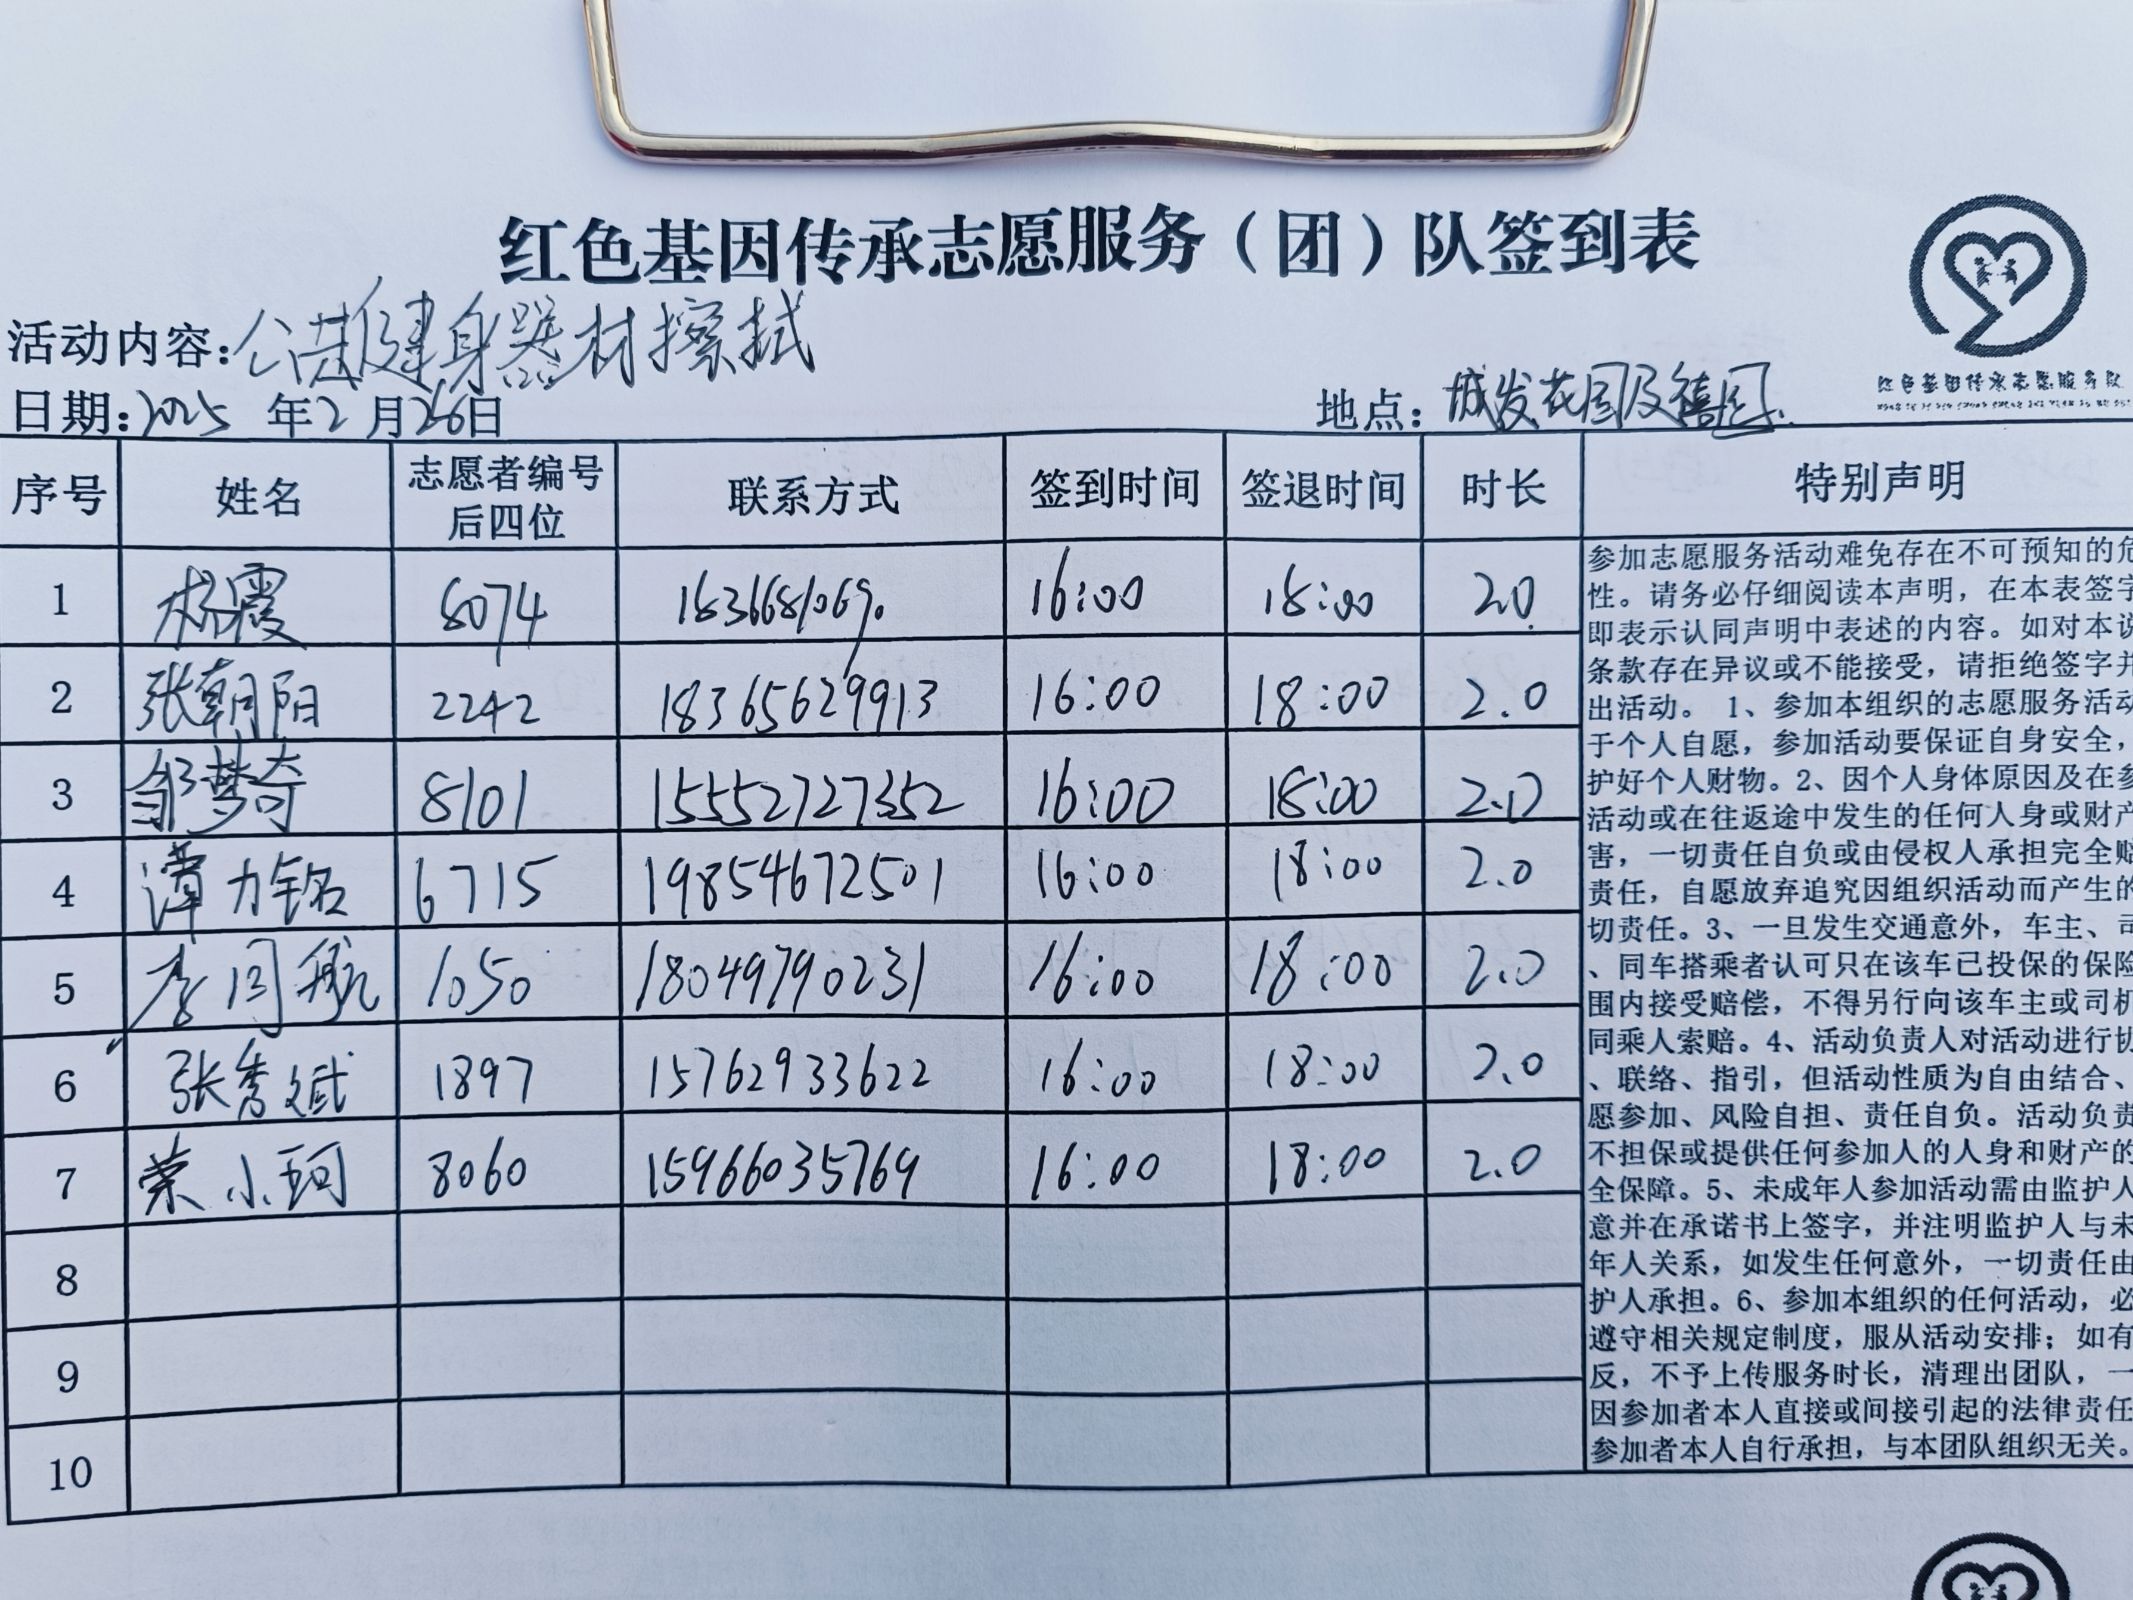 红色基因传承志愿服务（团）队签到表
红色基因传承志愿服务队
活动内容:公共健身器材擦拭
日期:2025年2月26日 地点:城发花园及禧园
序号 姓名 志愿者编号后四位 联系方式 签到时间 签退时间 时长 特别声明
1 杨霞 8074 18366681069 16:00 18:00 2.0
2 张朝阳 2242 18365629913 16:00 18:00 2.0
3 邹梦奇 8101 15552727352 16:00 18:00 2.0
4 潭力铭 6715 19854672501 16:00 18:00 2.0
5 李同航 1050 18049790231 16:00 18:00 2.0
6 张秀斌 1897 15762933622 16:00 18:00 2.0
7 荣小珂 8060 15966035769 16:00 18:00 2.0
8
9
10
参加志愿服务活动难免存在不可预知的危
性。请务必仔细阅读本声明，在本表签字
即表示认同声明中表述的内容。如对本说
条款存在异议或不能接受，请拒绝签字并
出活动。 1、参加本组织的志愿服务活动
于个人自愿，参加活动要保证自身安全，
护好个人财物。2、因个人身体原因及在参
活动或在往返途中发生的任何人身或财产
害，一切责任自负或由侵权人承担完全赔
责任，自愿放弃追究因组织活动而产生的
切责任。3、一旦发生交通意外，车主、司
、同车搭乘者认可只在该车已投保的保险
围内接受赔偿，不得另行向该车主或司机
同乘人索赔。4、活动负责人对活动进行协
、联络、指引，但活动性质为自由结合、
愿参加、风险自担、责任自负。活动负责
不担保或提供任何参加人的人身和财产的
全保障。5、未成年人参加活动需由监护人
意并在承诺书上签字，并注明监护人与未
年人关系，如发生任何意外，一切责任由
护人承担。6、参加本组织的任何活动，必
遵守相关规定制度，服从活动安排；如有
反，不予上传服务时长，清理出团队，一
因参加者本人直接或间接引起的法律责任
参加者本人自行承担，与本团队组织无关。